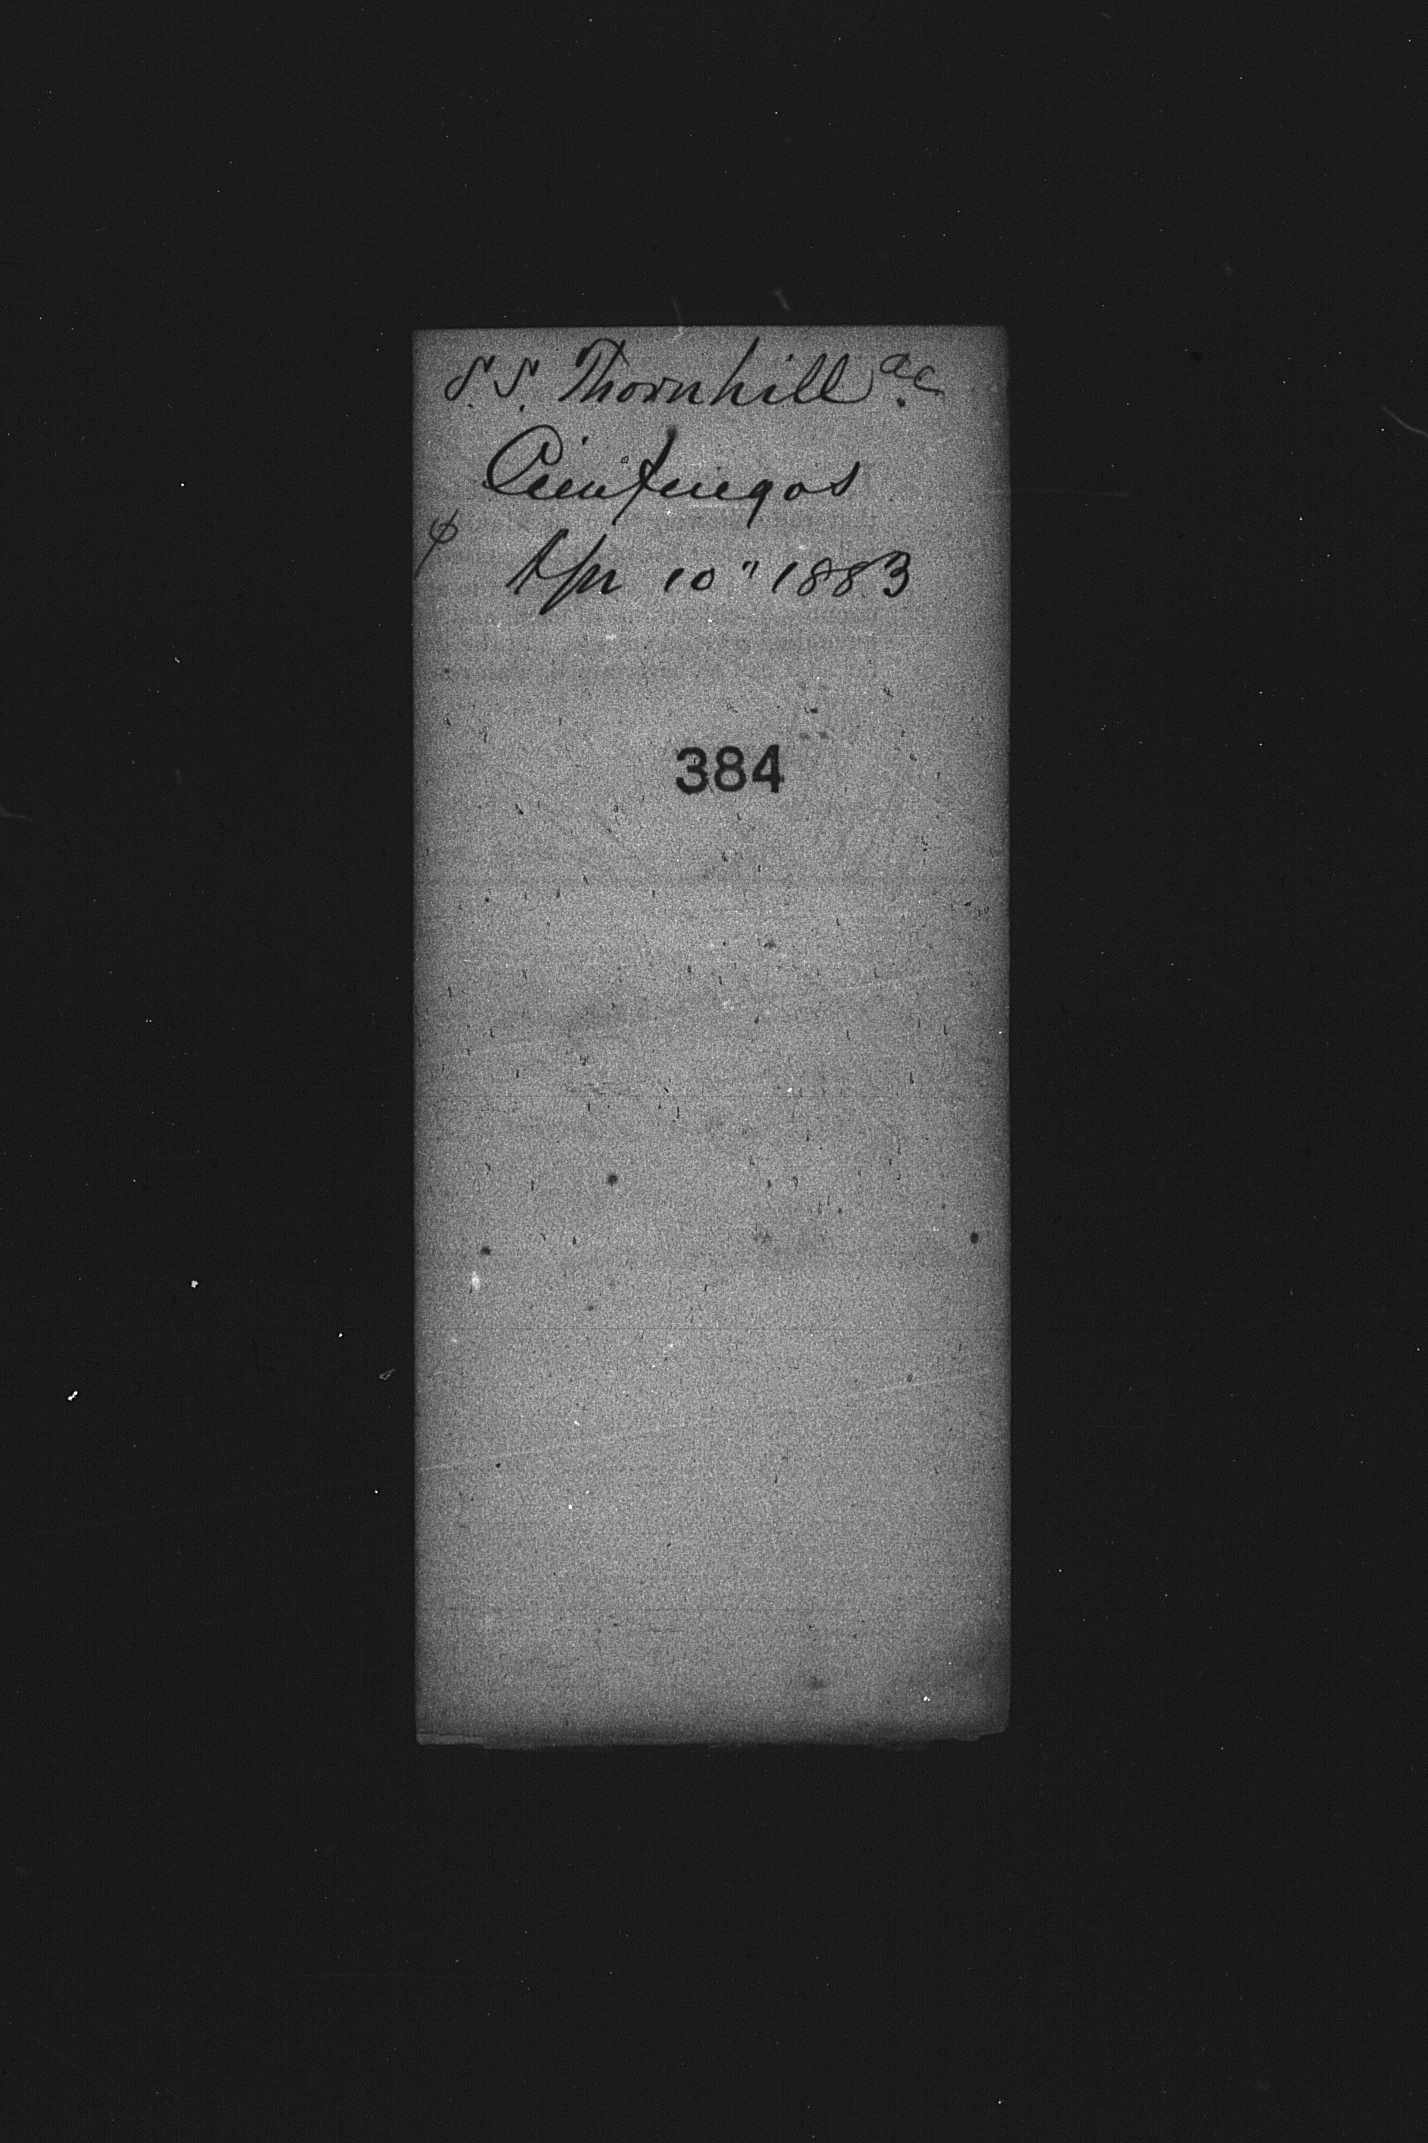 S.S. Thornhill a.c.
Cienfuegos
Apr 10" 1883
384